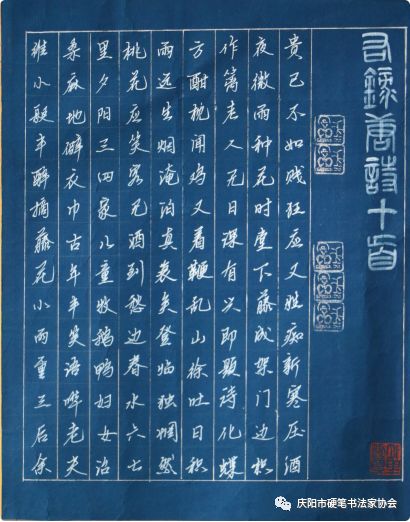 錄唐詩十首
貴已不如贱狂应又胜痴新寒压酒
夜微雨种花时堂下藤成架门边枳
作篱老人无日课有兴即题诗化蝶
方酣枕闻鸡又着鞭乱山徐吐日积
雨远生烟淹泊真衰矣登临独惘然
桃花应笑客无酒到愁边春水六七
里夕阳三四家儿童牧鹅鸭妇女治
桑麻地僻衣巾古年丰笑语哗老夫
维小艇半醉摘藤花小雨重三后余
庆阳市硬笔书法家协会